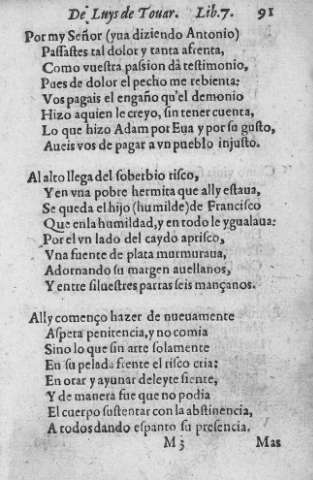 De Luys de Touar. Lib.7. 91
Por my Señor (yua diziendo Antonio)
Passastes tal dolor y tanta afrenta,
Como vuestra passion dà testimonio,
Pues de dolor el pecho me rebienta:
Vos pagais el engaño qu'el demonio
Hizo aquien le creyo, sin tener cuenta,
Lo que hizo Adam por Eua y por su gusto,
Aueis vos de pagar a vn pueblo injusto.
Al alto llega del soberbio risco,
Y en vna pobre hermita que ally estaua,
Se queda el hijo (humilde) de Francisco
Que en la humildad, y en todo le ygualaua:
Por el vn lado del caydo aprisco,
Vna fuente de plata murmuraua,
Adornando su margen auellanos,
Y entre siluestres parras seis mançanos.
Ally començo hazer de nueuamente
Aspera penitencia, y no comia
Sino lo que sin arte solamente
En su pelada frente el risco cria:
En orar y ayunar deleyte siente,
Y de manera fue que no podia
El cuerpo sustentar con la abstinencia,
A todos dando espanto su presencia.
M 3 Mas